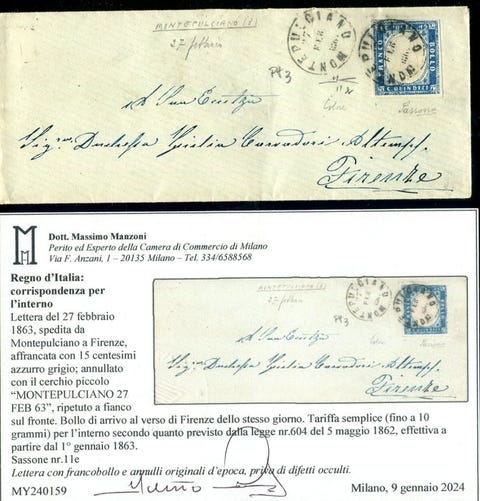 MONTEPULCIANO (8)
27 febbraio
MONTEPULCIANO
27
FEB
63
MONTEPULCIANO
FEB
63
FRANCO
BOLLO
C. QUINDICI
Pt 3
Colore
Sassone
A Sua Eccellza
Sigra Duchessa Giulia Altemps
Firenze
M
Dott. Massimo Manzoni
Perito ed Esperto della Camera di Commercio di Milano
Via F. Anzani, 1 – 20135 Milano – Tel. 334/6588568
Regno d'Italia:
corrispondenza per
l'interno
Lettera del 27 febbraio
1863, spedita da
Montepulciano a Firenze,
affrancata con 15 centesimi
azzurro grigio; annullato
con il cerchio piccolo
"MONTEPULCIANO 27
FEB 63", ripetuto a fianco
sul fronte. Bollo di arrivo al verso di Firenze dello stesso giorno. Tariffa semplice (fino a 10
grammi) per l'interno secondo quanto previsto dalla legge nr.604 del 5 maggio 1862, effettiva a
partire dal 1° gennaio 1863.
Sassone nr.11e
Lettera con francobollo e annulli originali d'epoca, priva di difetti occulti.
MY240159
Milano, 9 gennaio 2024